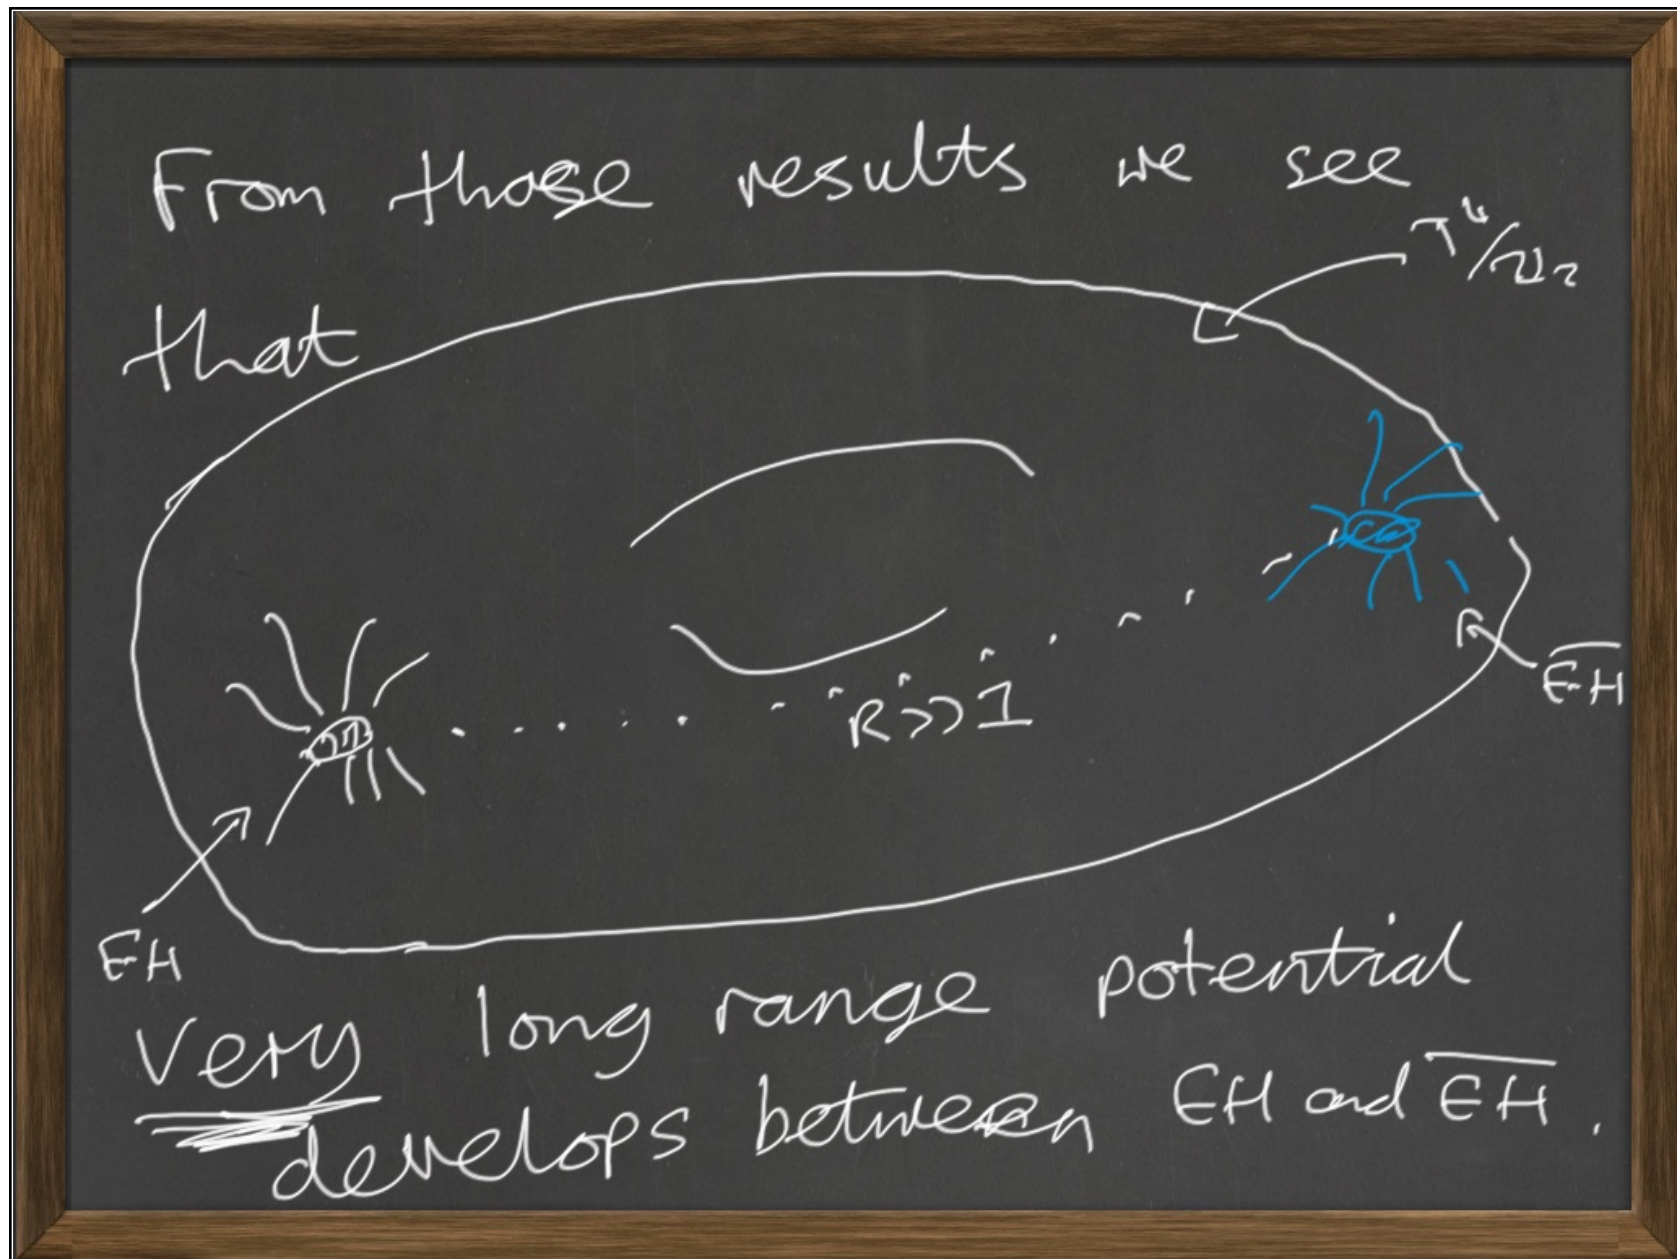 From those results we see
T⁴/ℤ₂
that
R>>1
E̅H̅
EH
very long range potential
develops between EH and E̅H̅.